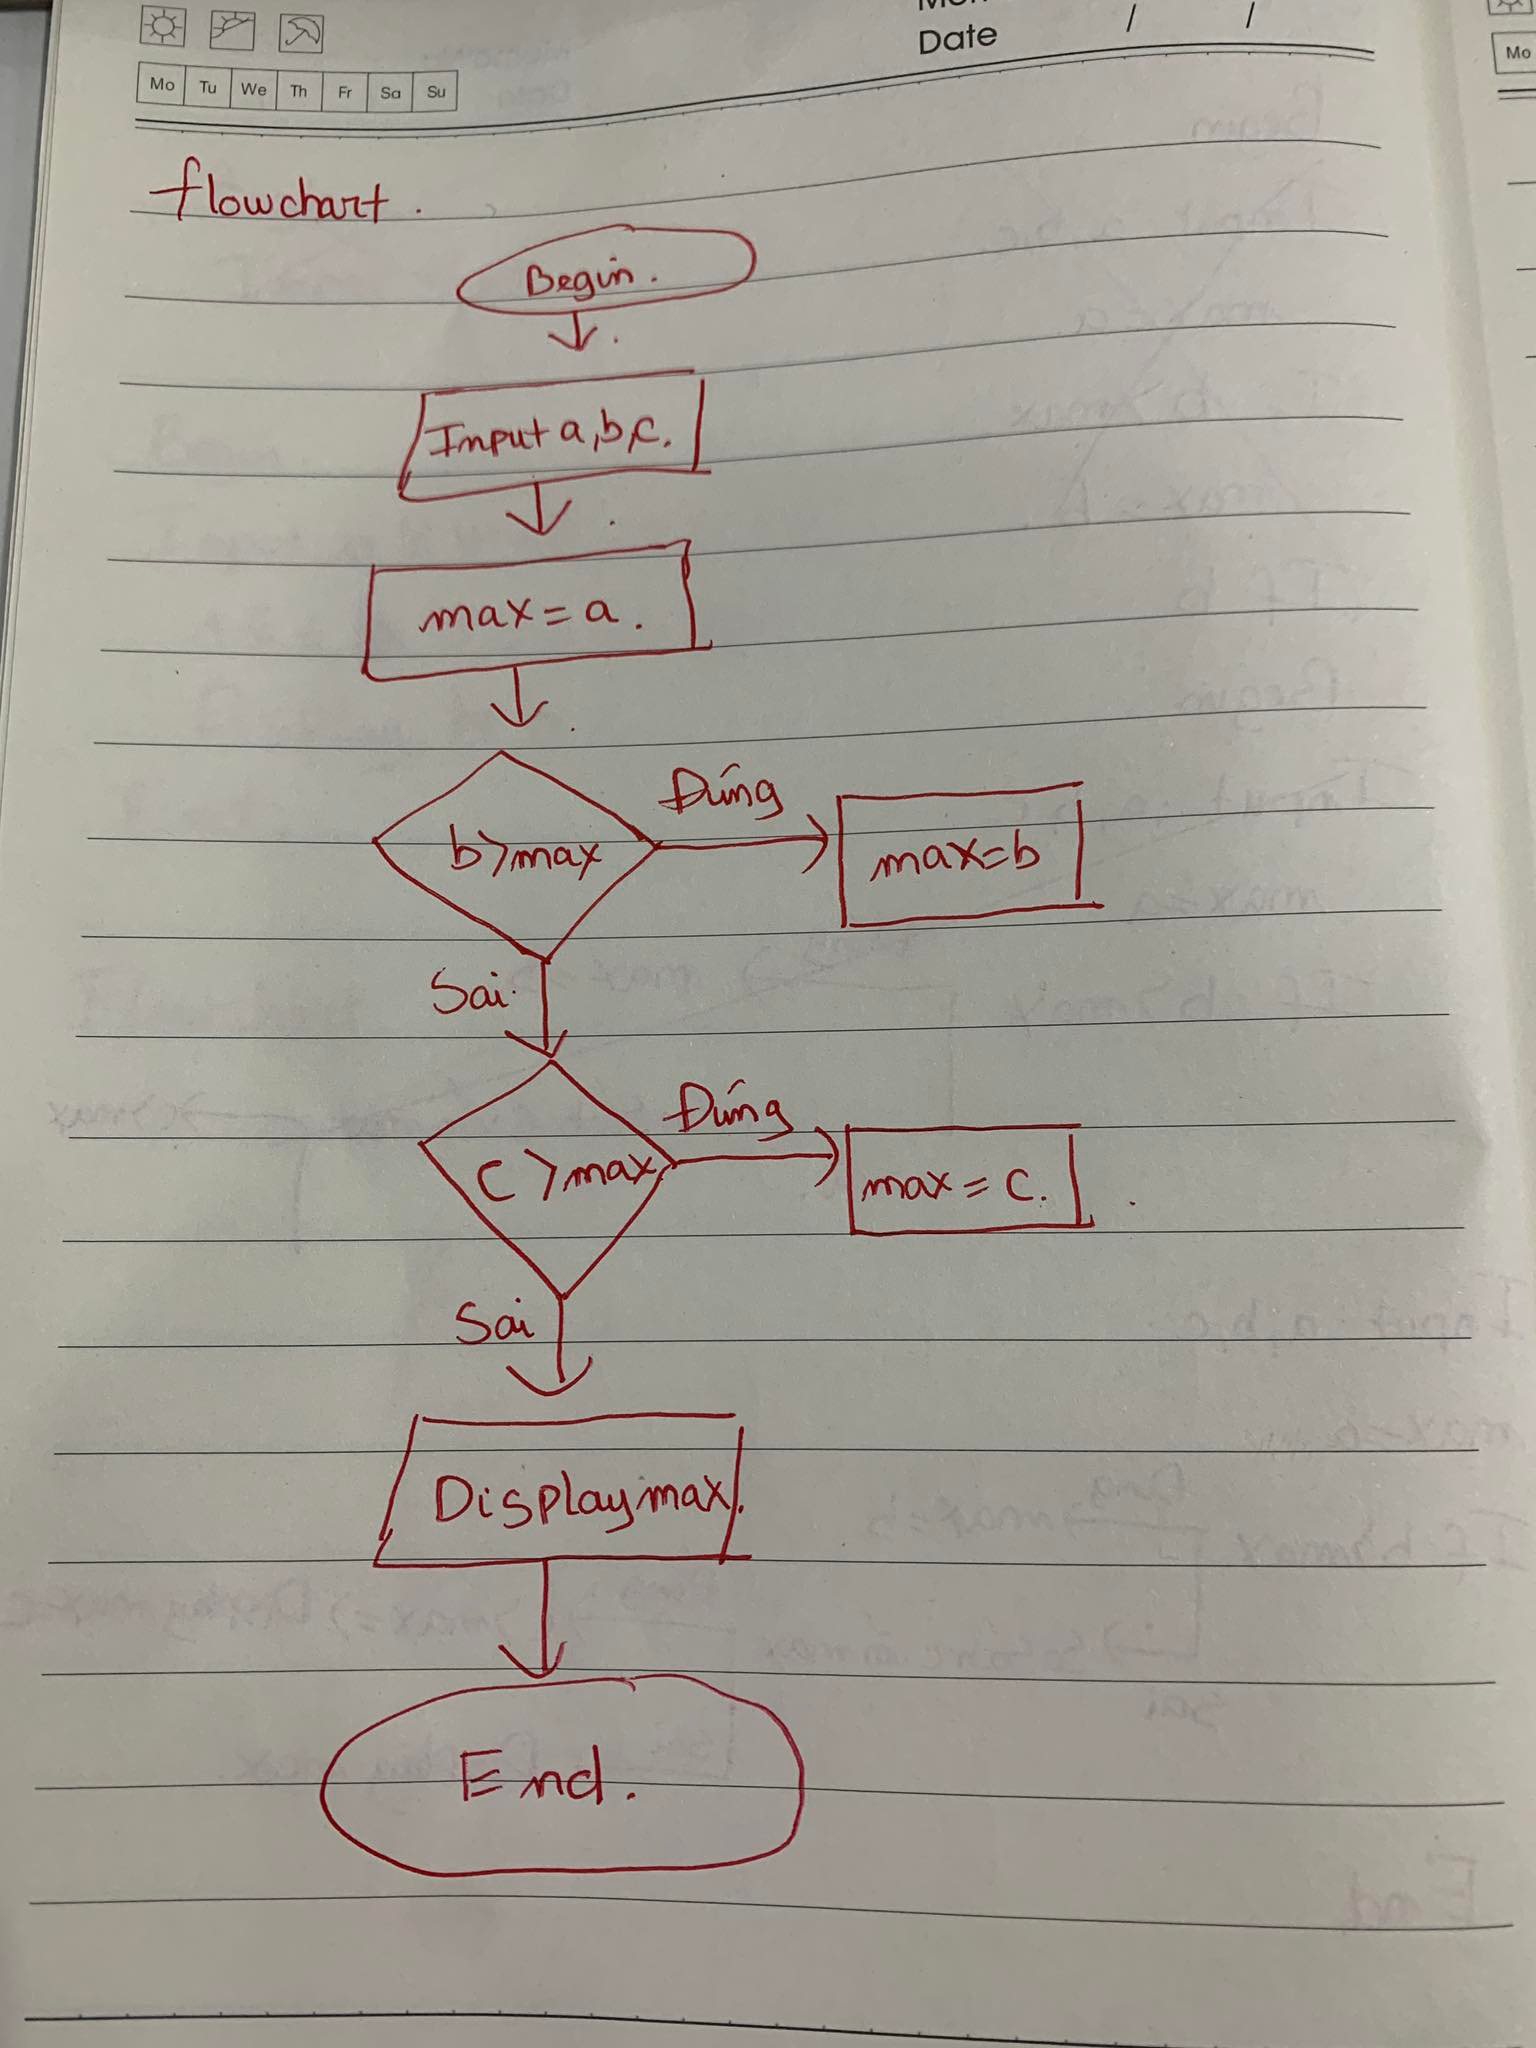 Date / /
Mo Tu We Th Fr Sa Su
Mo
flowchart.
Begin.
Input a,b,c.
max = a.
b>max
Đúng
max=b
Sai
c>max
Đúng
max = c.
Sai
Display max.
End.